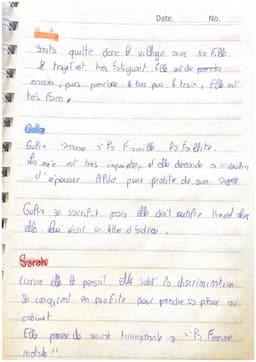 Date. No.
Smita
Smita quitte donc le village avec sa fille.
Le trajet est très fatiguant. Elle ont du prendre
, puis prendre le bus puis le train, Elle ont
très faim.
Giulia
Giulia sa famille la faillite.
La mère est très inquiète, et elle demande a Giulia
d'épouser Aldo pour profite de son
Giulia se sacrifit mais elle doit oublié
elle lui écrit un lettre d'adieu.
Sarah
Comme elle le pensait elle subit la discrimination
Se en profite pour prendre sa place au
cabinet
Elle passe de a "la Femme
malade".